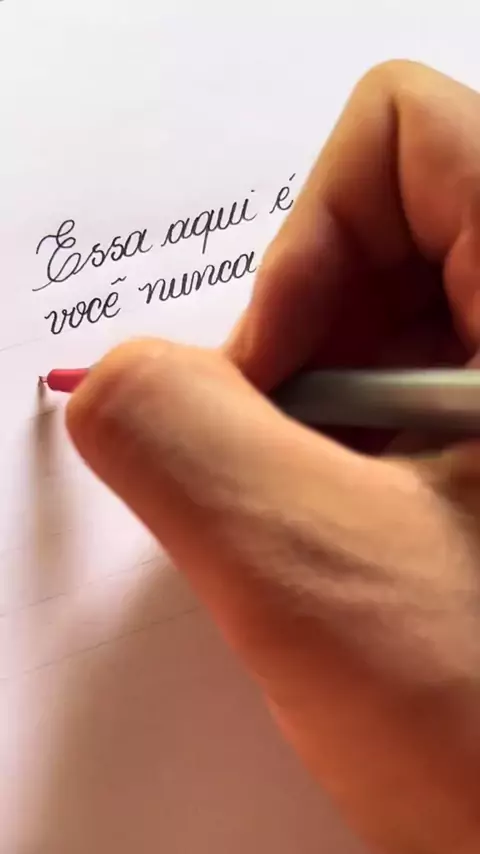 Essa aqui é
você nunca